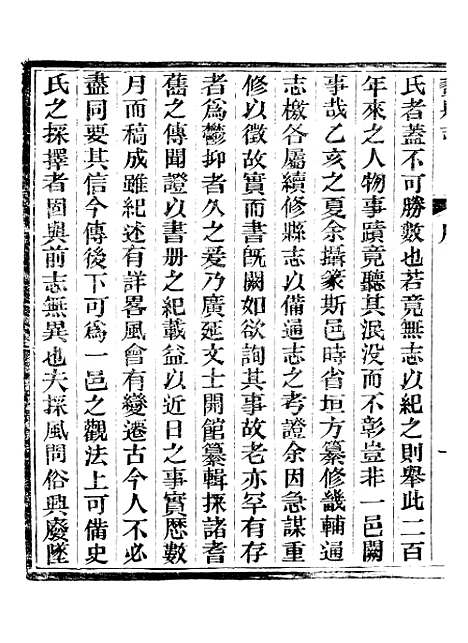 氏者蓋不可勝數也若竟無志以紀之則舉此二百
年來之人物事蹟竟聽其泯没而不彰豈非一邑闕
事哉乙亥之夏余攝篆斯邑時省垣方纂修畿輔通
志檄各屬續修縣志以備通志之考證余因急謀重
修以徵故實而書旣闕如欲詢其事故老亦罕有存
者爲鬱抑者久之爰乃廣延文士開館纂輯採諸耆
舊之傳聞證以書册之紀載益以近日之事實歷數
月而稿成雖紀述有詳畧風會有變遷古今人不必
盡同要其信今傳後下可爲一邑之觀法上可備史
氏之採擇者固與前志無異也夫採風問俗興廢墜